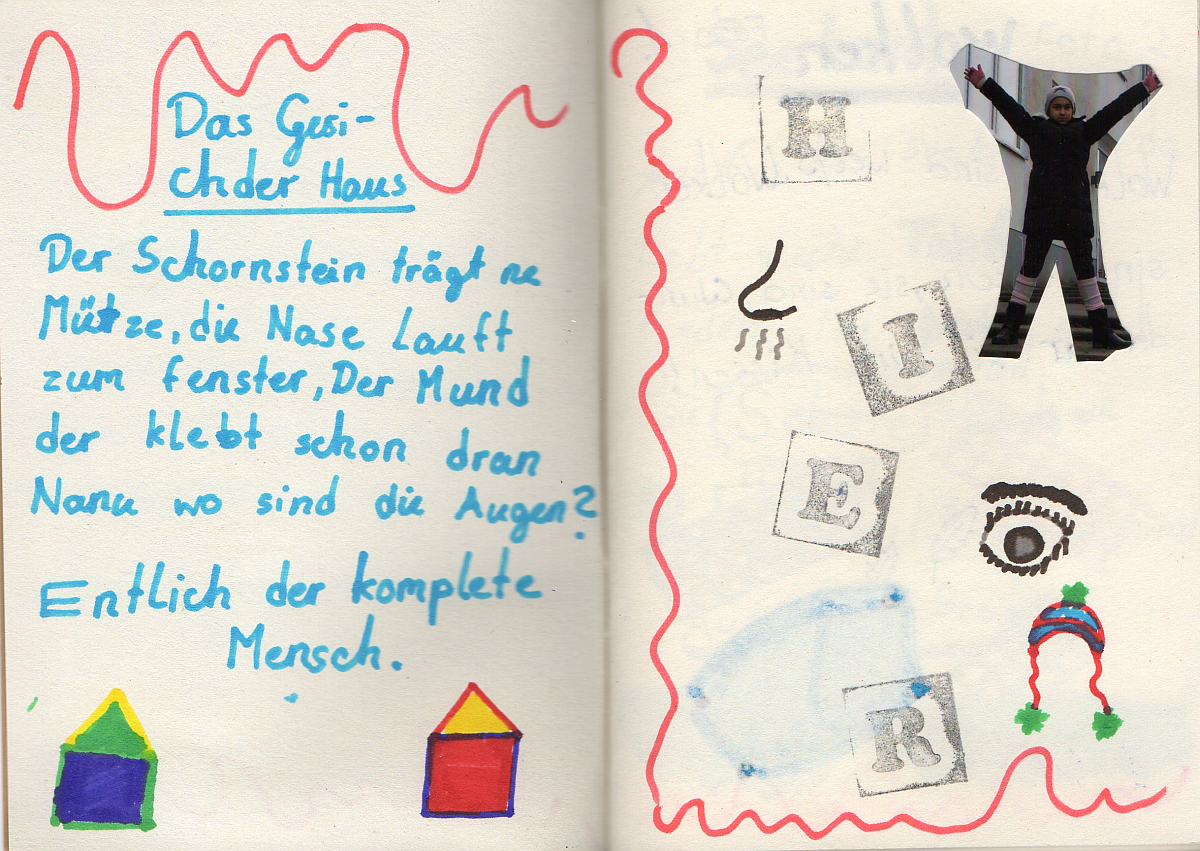 Das Gesi-
chder Haus
Der Schornstein trägt ne
Mütze, die Nase Lauft
zum fenster, Der Mund
der klebt schon dran
Nanu wo sind die Augen?
Entlich der komplete
Mensch.
H
I
E
R